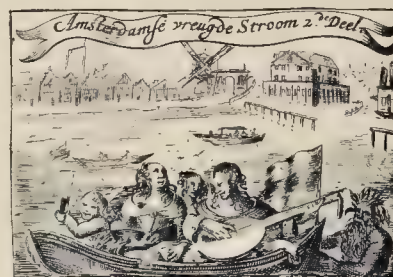 Amsterdamse vreugde Stroom 2.de Deel.